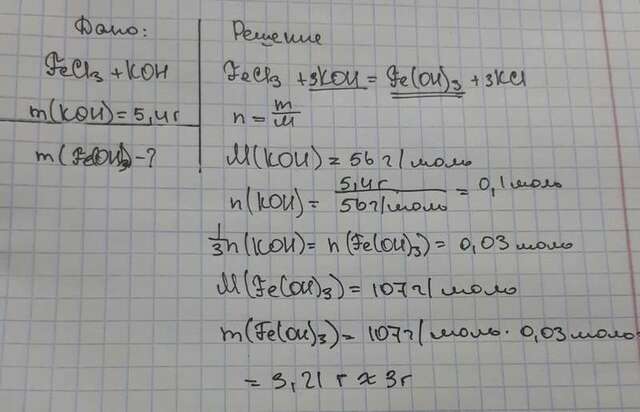 Дано:
FeCl₃ + KOH
m(KOH) = 5,4г
m(Fe(OH)₃ - ?
Решение
FeCl₃ + 3KOH = Fe(OH)₃ + 3KCl
n = m/M
M(KOH) = 56 г/моль
n(KOH) = 5,4г / 56г/моль = 0,1 моль
1/3 n(KOH) = n(Fe(OH)₃) = 0,03 моль
M(Fe(OH)₃) = 107 г/моль
m(Fe(OH)₃) = 107г/моль · 0,03 моль
= 3,21 г ≈ 3г